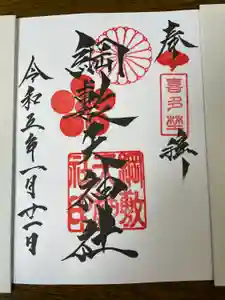 奉拝
喜多埜
綱敷天神社
綱敷天神社印
令和五年一月廿一日